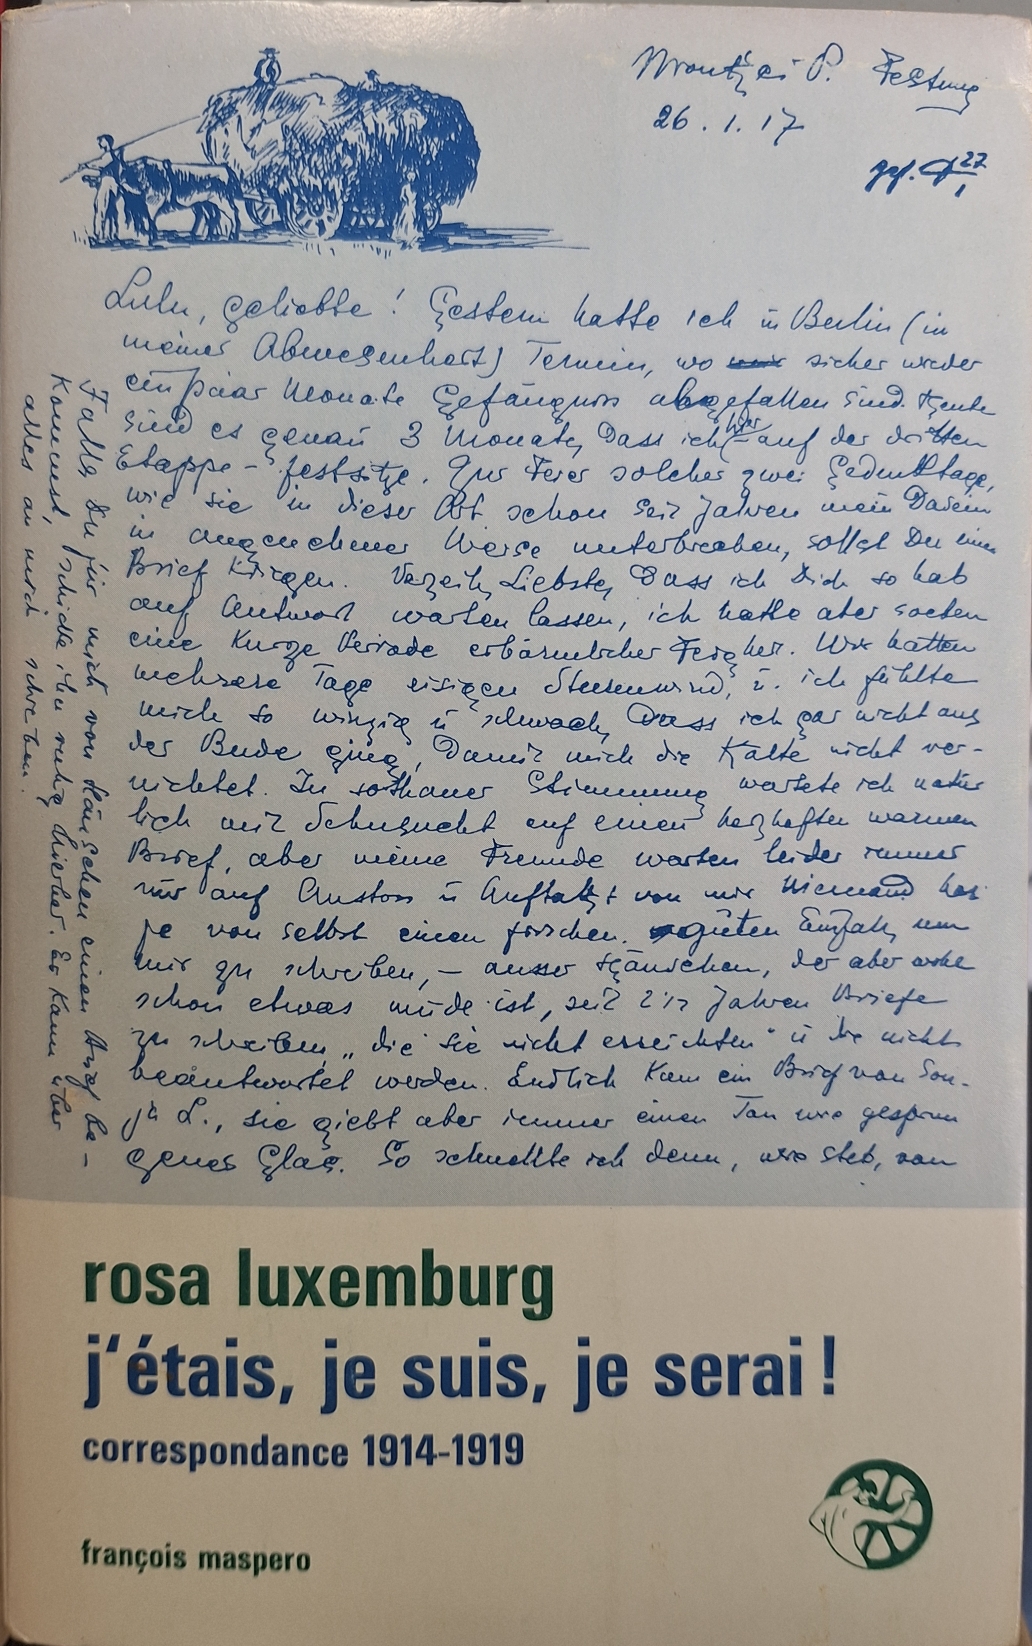 Wronke i. P. Festung
26.1.17
gel. 27/1
Lulu, geliebte! Gestern hatte ich in Berlin (in
meiner Abwesenheit) Termin, wo sicher wieder
ein paar Monate Gefängnis abgefallen sind. Heute
sind es genau 3 Monate, dass ich hier auf der dritten
Etappe – festsitze. Zur Feier solcher zwei Gedenktage,
wie sie in dieser Art schon seit Jahren mein Dasein
in angenehmer Weise unterbrechen, sollst Du einen
Brief kriegen. Verzeih, Liebste, dass ich Dich so hab
auf Antwort warten lassen, ich hatte aber soeben
eine kurze Periode erbärmlicher Feigheit. Wir hatten
mehrere Tage eisigen Sturmwind, u. ich fühlte
mich so winzig u schwach, dass ich gar nicht aus
der Bude ging, damit mich die Kälte nicht ver-
nichtet. In sothaner Stimmung wartete ich natür
lich mit Sehnsucht auf einen herzhaften warmen
Brief, aber meine Freunde warten leider immer
nur auf Anstoss u Auftakt von mir. Niemand hat
je von selbst einen frischen guten Einfall, um
mir zu schreiben, – ausser Hänschen, der aber wohl
schon etwas müde ist, seit 2 1/2 Jahren Briefe
zu schreiben, „die sie nicht erreichten“ u die nicht
beantwortet werden. Endlich kam ein Brief von Son-
ja L., sie giebt aber immer einen Ton wie gesprun
genes Glas. So schnellte ich denn, wie stets, von
Falls Du für mich von Hänschen einen Brief be-
kommst, schicke ihn ruhig hierher. Er kann über
alles an mich schreiben.
rosa luxemburg
j'étais, je suis, je serai !
correspondance 1914-1919
françois maspero